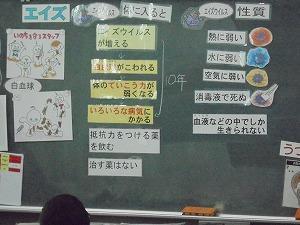 エイズ
いのちを守るスタッフ
白血球
体に入ると
エイズウイルスが増える
がこわれる
体のていこう力が弱くなる
いろいろな病気にかかる
抵抗力をつける薬を飲む
治す薬はない
10年
エイズウイルス
性質
熱に弱い
水に弱い
空気に弱い
消毒液で死ぬ
血液などの中でしか
生きられない
うつ